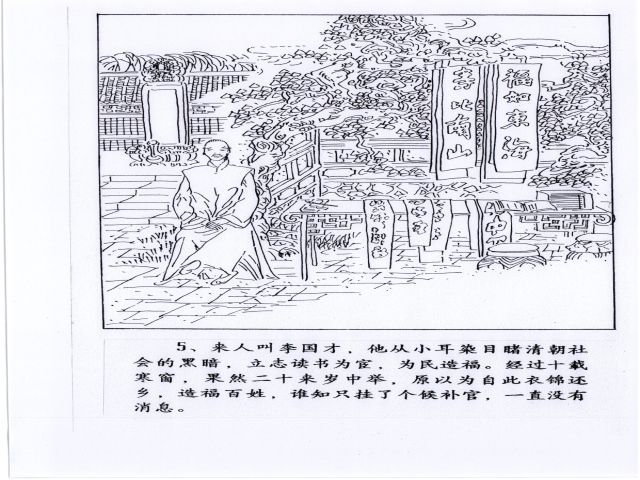 福如東海
寿比南山
5、来人叫李国才，他从小耳染目睹清朝社
会的黑暗，立志读书为官，为民造福。经过十载
寒窗，果然二十来岁中举，原以为自此衣锦还
乡，造福百姓，谁知只挂了个候补官，一直没有
消息。